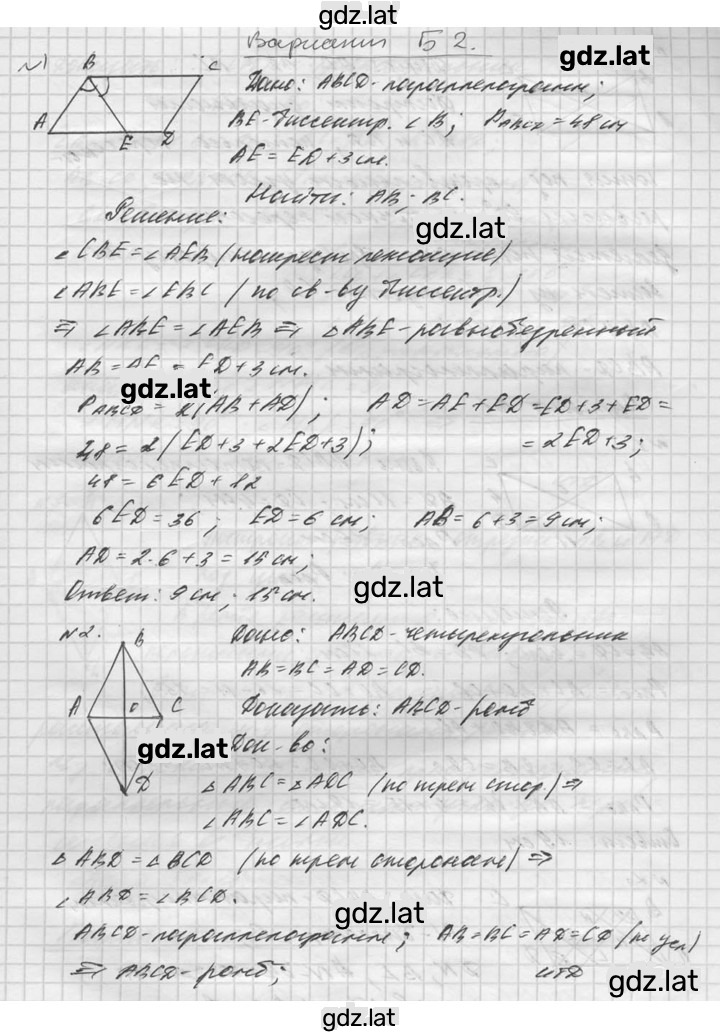 gdz.lat
Вариант Б2.
gdz.lat
№1
B
C
A
E
D
Дано: ABCD-параллелограмм;
BE-биссектр. ∠B; P_ABCD = 48 см
AE = ED + 3 см.
Найти: AB; BC.
gdz.lat
Решение:
∠CBE = ∠AEB (накрест лежащие)
∠ABE = ∠EBC (по св-ву биссектр.)
⇒ ∠ABE = ∠AEB ⇒ △ABE-равнобедренный
AB = AE = ED + 3 см.
gdz.lat
P_ABCD = 2(AB + AD); AD = AE + ED = ED + 3 + ED =
48 = 2(ED + 3 + 2ED + 3); = 2ED + 3;
48 = 6ED + 12
6ED = 36; ED = 6 см; AB = 6 + 3 = 9 см;
AD = 2·6 + 3 = 15 см;
gdz.lat
Ответ: 9 см; 15 см.
№2.
B
A
O
C
D
Дано: ABCD-четырехугольник
AB = BC = AD = CD.
Доказать: ABCD-ромб
gdz.lat
Док-во:
△ABC = △ADC (по трем стор.) ⇒
∠ABC = ∠ADC.
△ABD = △BCD (по трем сторонам) ⇒
∠ABD = ∠BCD.
gdz.lat
ABCD-параллелограмм; AB = BC = AD = CD (по усл)
⇒ ABCD-ромб; чтд
gdz.lat
gdz.lat